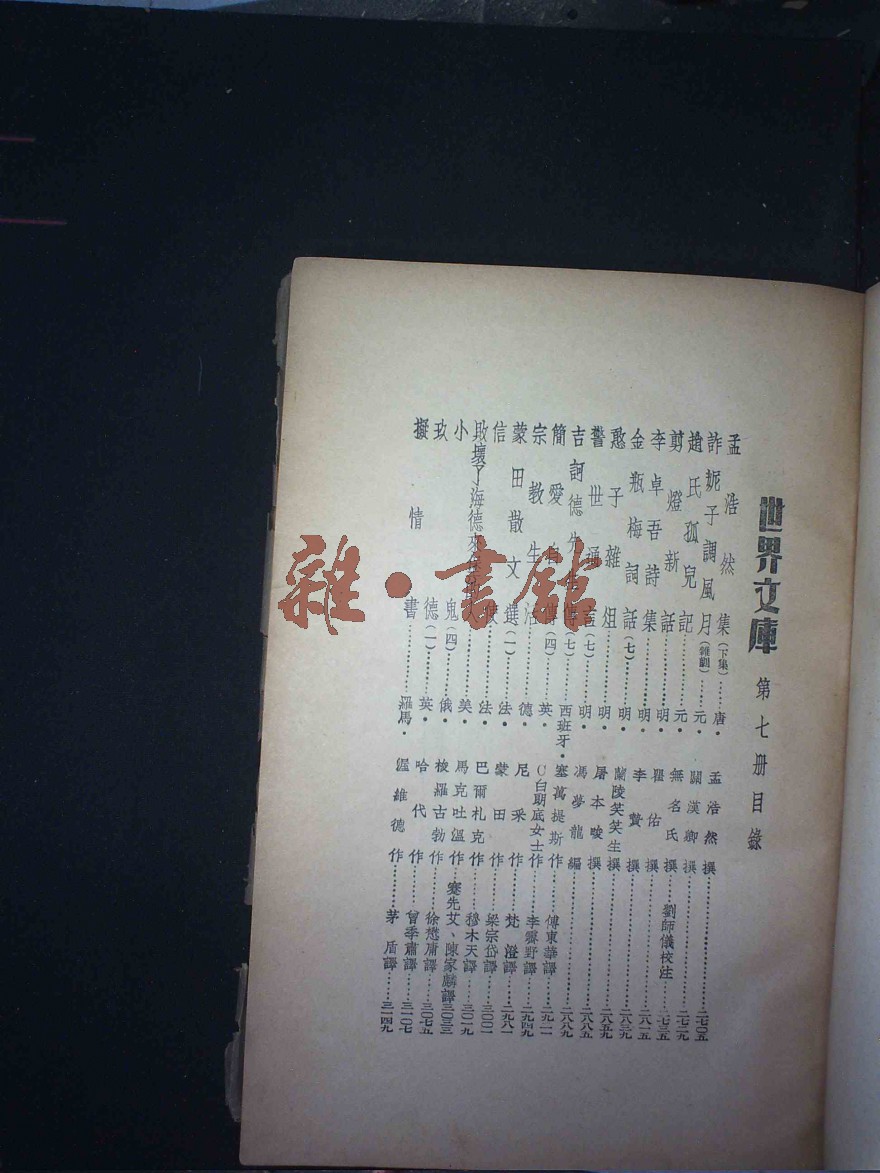 世界文庫 第七册目錄
孟浩然集(下集)……唐·孟浩然撰……二七〇五
詐妮子調風月(雜劇)……元·關漢卿撰……二七一九
趙氏孤兒記……元·無名氏撰……劉師儀校注……二七三五
剪燈新話……明·瞿佑撰……二八一五
李卓吾詩集……明·李贄撰……二八三九
金瓶梅詞話(七)……明·蘭陵笑笑生撰……二八五九
憨子雜俎……明·屠本畯撰……二八八五
警世通言(七)……明·馮夢龍編……二八八九
吉訶德先生傳(七)……西班牙·塞萬提斯作……傅東華譯……二九一一
簡愛自傳(四)……英·C白朗底女士作……李霽野譯……二九四九
宗教生活……德·尼采作……梵澄譯……二九八一
蒙田散文選(一)……法·蒙田作……梁宗岱譯……三〇〇一
信使……法·巴爾札克作……穆木天譯……三〇一九
敗壞了海德來堡的人……美·馬克吐溫作……蹇先艾、陳家麟譯……三〇三三
小鬼(四)……俄·梭羅古勃作……徐懋庸譯……三〇七五
玖德(一)……英·哈代作……曾季肅譯……三一〇七
擬情書……羅馬·渥維德作……茅盾譯……三一四九
雜·書館